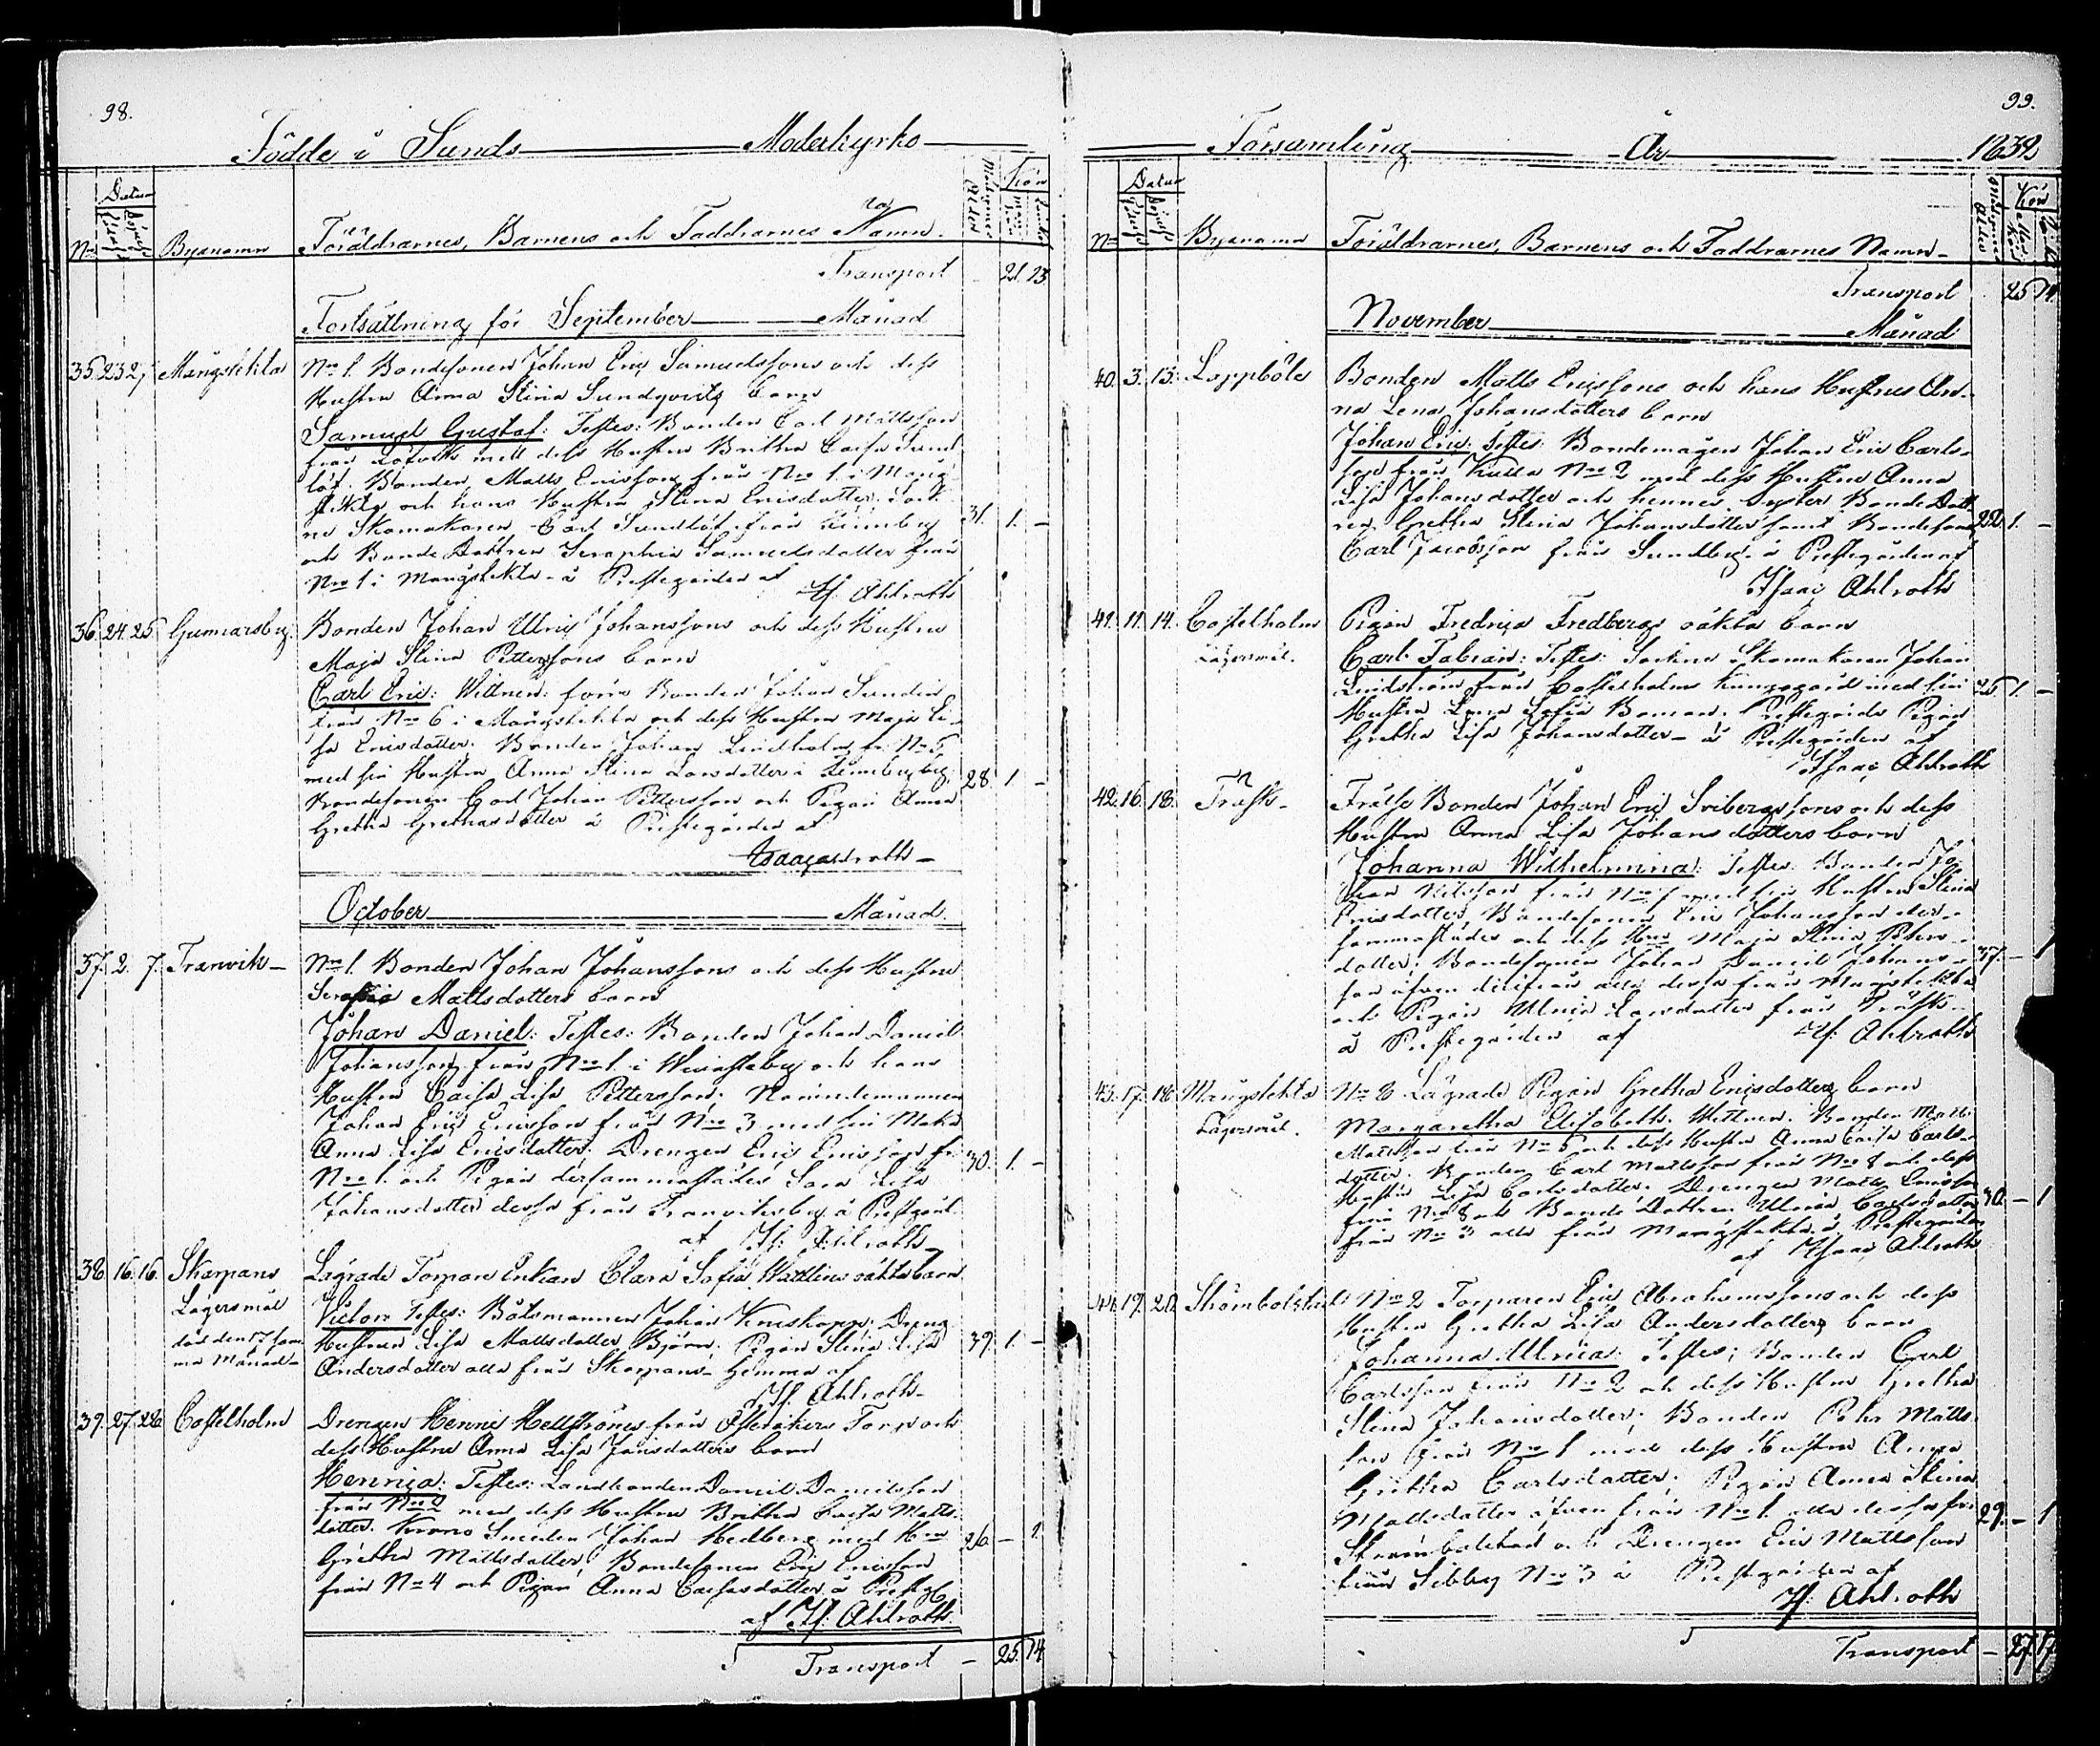 98.
Födde i Sunds Moderkyrko
Datum
No Byanamn Föräldrarnes, Barnens och Faddrarnes Namn.
Kön
Transport 21. 13
Fortsättning för September Månad
35. 23 2, Mångstekta No 1. Bondesonen Johan Eric Samuelssons och dess
Hustru Anna Stina Sundqvists barn
Samuel Gustaf: Testes: Bonden Carl Mattsson
från med dess Hustru Britha Caisa Sund
löf. Bonden Matts Ericsson från No 1. i Mång
stekta och hans Hustru Stina Ericsdotter. Sock
ne Skomakaren Carl Sundlöf från 31. 1. -
och Bonde Dottren Seraphia Samuelsdotter från
No 1 i Mångstekta - å Prestegården af
Is. Ahlroth
36. 24. 25. Gunnarsby. Bonden Johan Ulric Johanssons och dess Hustru
Maja Stina Pettersons barn
Carl Eric: Wittnen: förra Bonden Johan Sundin
från No 6 i Mångstekta och dess Hustru Maja Li-
sa Ericsdotter. Bonden Johan Lindholm fr. No 5
med sin Hustru Anna Stina Larsdotter i 28. 1. -
Bondesonen Carl Johan Pettersson och Pigan Anna
Gretha Grethasdotter å Prestegården af
Isaac Ahlroth -
October Månad
37. 2. 7. Tranvik - No 1. Bonden Johan Johanssons och dess Hustru
Serafia Mattsdotters barn
Johan Daniel: Testes: Bonden Johan Daniel
Johansson från No 1. i och hans
Hustru Caisa Lisa Pettersson. Nämndemannen
Johan Eric Ericsson från No 3 med sin Maka
Anna Lisa Ericsdotter. Drengen Eric Ericsson fr. 30. 1. -
No 1. och Pigan dersammastädes Sara Lisa
Johansdotter dessa från Tranviksby å Prestgård.
af Is: Ahlroth
38. 16. 16. Skarpans Lägrade Torpare Enkan Clara Sofia Wattlins oäkta barn
Lägersmål Victor Testes: Båtsmannen Johan Knuskopp. Dreng
död den 17 sam Hustrun Lisa Mattsdotter Björn. Pigan Stina Lisa 39. 1. -
ma Månad - Andersdotter alla från Skarpans - Hemma af
Is. Ahlroth -
39. 27. 28. Castelholm Drengen Henric Hellströms från Österåkers Torp och
dess Hustru Anna Lisa Jansdotters barn
Henrica: Testes: Landbonden Daniel Danielsson
från No 2 med dess Hustru Britha Caisa Matts-
dotter. Krono Smeden Johan Hedberg med Hru 26. - 1.
Gretha Mattsdotter. Bondesonen Eric Ericsson
från No 4 och Pigan Anna Caisasdotter å Prestg.
af Is: Ahlroth.
Transport - 25. 14
99.
Församling År 1832
Datum
No Byanamn Föräldrarnes, Barnens och Faddrarnes Namn -
Kön
Transport 25 14
November Månad
40. 3. 13. Lappböle Bonden Matts Ericssons och hans Hustrus An-
na Lena Johansdotters barn
Johan Eric: Testes: Bondemågen Johan Eric Carls-
son från Kulla No 2 med dess Hustru Anna
Lisa Johansdotter och hennes Syster Bonde Dott
ren Gretha Stina Johansdotter samt Bondesonen 22. 1. -
Carl Jacobsson från Sundby. å Prestegården af
Isaac Ahlroth
41. 11. 14. Castelholm Pigan Fredrica Fredbergs oäkta barn
Lägersmål. Carl Fabian: Testes: Sockne Skomakaren Johan
Lindström från Castelholms Kungsgård med sin 25 1. -
Hustru Lena Sofia Boman. Prestegårds Pigan
Gretha Lisa Johansdotter - å Prestegården af
Isaac Ahlroth
42. 16. 18. Träsk - Frälse Bonden Johan Eric Svibergssons och dess
Hustru Anna Lisa Johansdotters barn
Johanna Wilhelmina: Testes: Bonden Jo-
han Nilsson från No 1 med sin Hustru Stina
Ericsdotter, Bondesonen Eric Johansson der-
sammastädes och dess Hru Maja Stina Pehrs-
dotter. Bondesonen Johan Daniel Johans- 37. - 1
son äfven alla dessa från Mångstekta
och Pigan Ulrica Larsdotter från Träsk -
å Prestegården af Is: Ahlroth
43. 17. 18. Mångstekta No 8 Lägrade Pigan Gretha Ericsdotters barn
Lägersmål. Margaretha Elisabeth. Wittnen. Bonden Matts
Mattsson från No 5 och dess Hustru Anna Caisa Carls-
dotter. Bonden Carl Mattsson från No 8 och dess
Hustru Lisa Carlsdotter. Drengen Matts Ericsson 30. - 1
från No 8 och Bonde Dottren Ulrica Carlsdotter
från No 3 alla från Mångstekta å Prestegården
af Isaac Ahlroth
44. 19. 20. Strömbolstad No 2 Torparen Eric Abrahamssons och dess
Hustru Gretha Lisa Andersdotters barn
Johanna Ulrica: Testes; Bonden Carl
Carlsson från No 2 och dess Hustru Gretha
Stina Johansdotter; Bonden Pehr Matts-
son från No 1 med dess Hustru Anna
Gretha Carlsdotter; Pigan Anna Stina
Mattsdotter äfven från No 1. alla dessa fr. 29. - 1
Strömbolstad och Drengen Eric Mattsson
från Sibby No 3 å Prestegården af
Is. Ahlroth
Transport - 27. 17